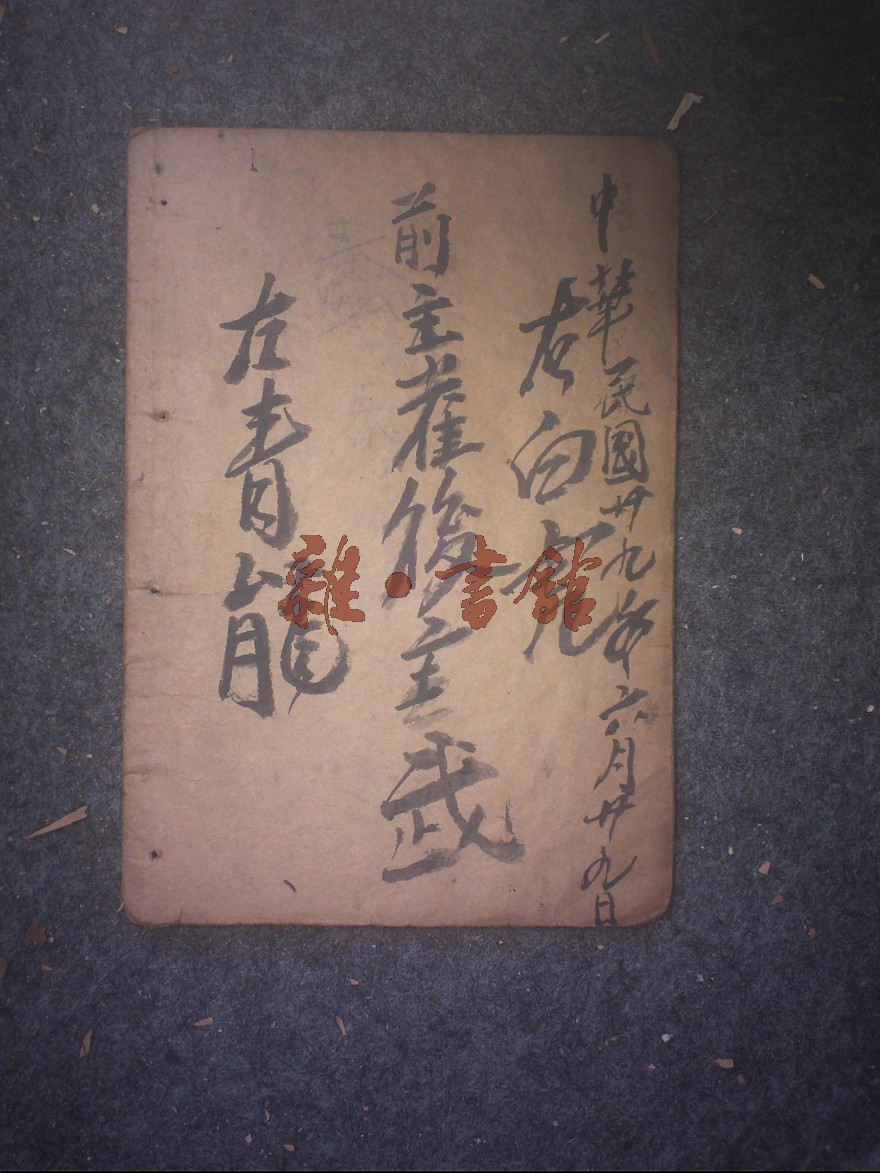 中華民國廿九年六月廿九日
右白虎
前主雀後主武
左青龍
雜·書館